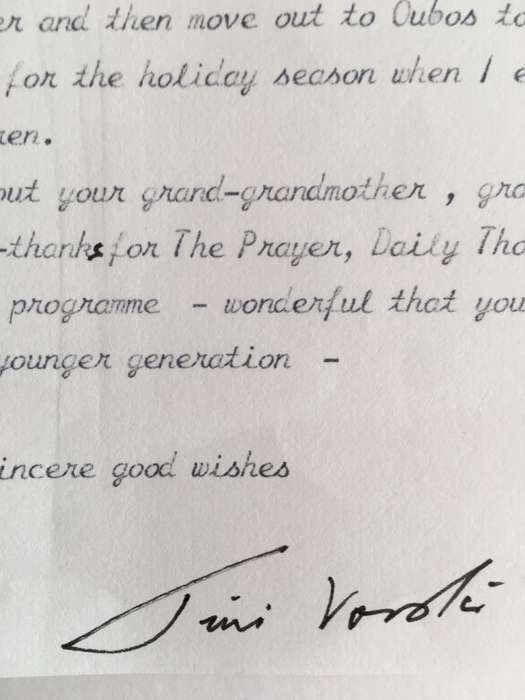 er and then move out to Oubos to
for the holiday season when I e
ren.
out your grand-grandmother , gra
-thanks for The Prayer, Daily Tho
programme - wonderful that you
younger generation -
incere good wishes
Tini Vorster